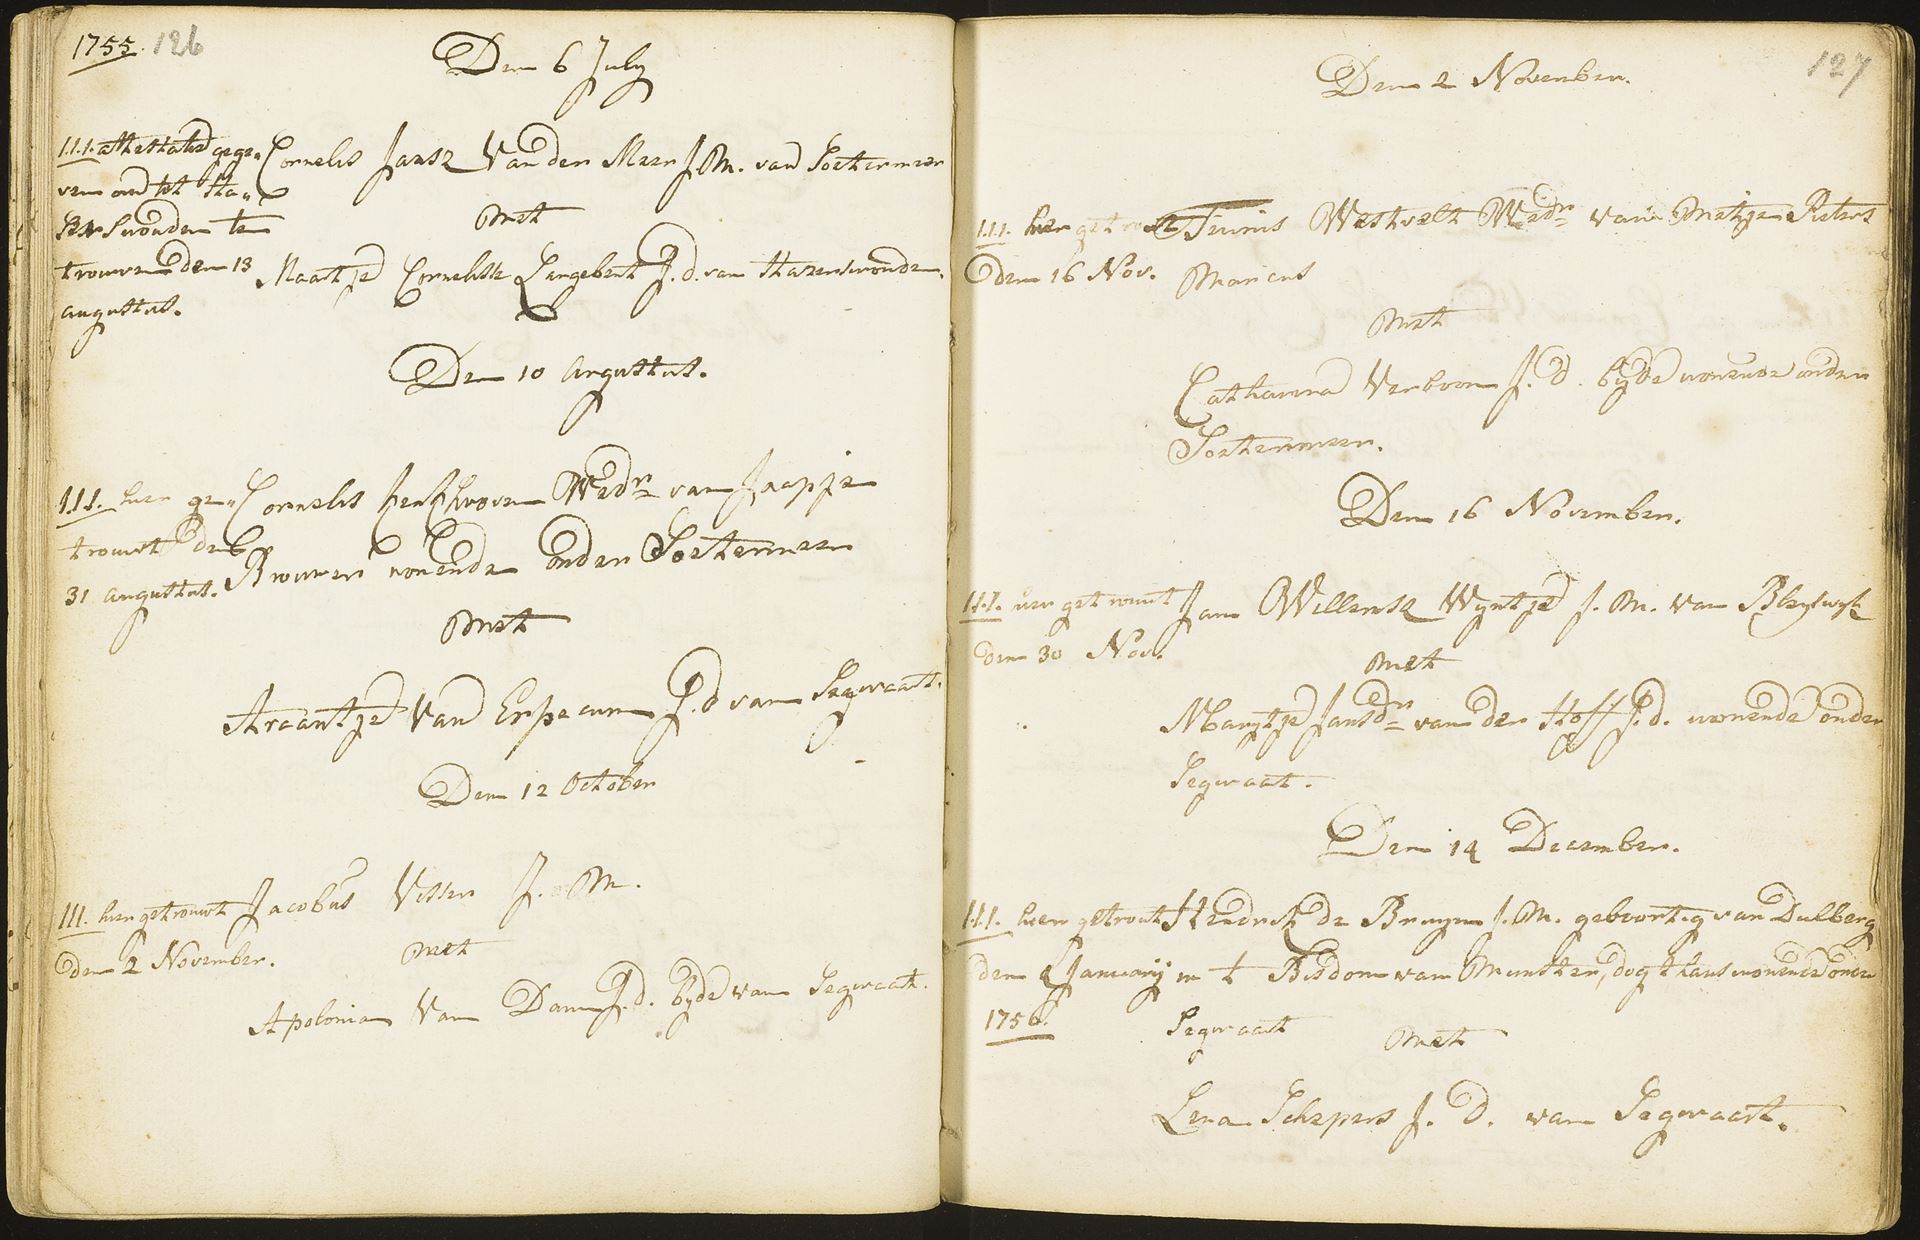 1755. 126
Den 6 July
1.1.1. attestatie gege„
ven om tot Ha„
Serswouden te
trouwen den 13
augustus.
Cornelis Jansz Van der Meer J.M. van Soetermeer
met
Maartje Cornelisse Langebent J.d. van Haserswouden.
Den 10 Augustus.
1.1.1. hier ge„
trouwt den
31 augustus.
Cornelis Wedr van Jaapje
Brouwer wonende onder Soetermeer
met
Araantje van Erpecum J.d van Segwaart.
Den 12 October
III. hier getrouwt
den 2 November.
Jacobus Visser J. M.
met
Apolonia Van Dam J.d. byde van Segwaart.
127
Den 2 November.
1.1.1. hier getrouwt
den 16 Nov.
Teunis Westvelt Wedr van Metje Pieters
Marcus
met
Catharina Verboom J. d. byde wonende onder
Soetermeer.
Den 16 November.
1.1.1. hier getrouwt
den 30 Nov.
Jan Willemsz Wyntje J. M. van Bleyswyk
met
Marytje Jansdr van der Hoff J.d. wonende onder
Segwaat.
Den 14 December.
1.1.1. hier getrout
den 4 January
1756.
Hendrik de Bruyn J.M. geboortig van Dulberg
in t Bisdom van Munster, dog thans wonende onder
Segwaart
met
Lena Schepers J. D. van Segwaart.